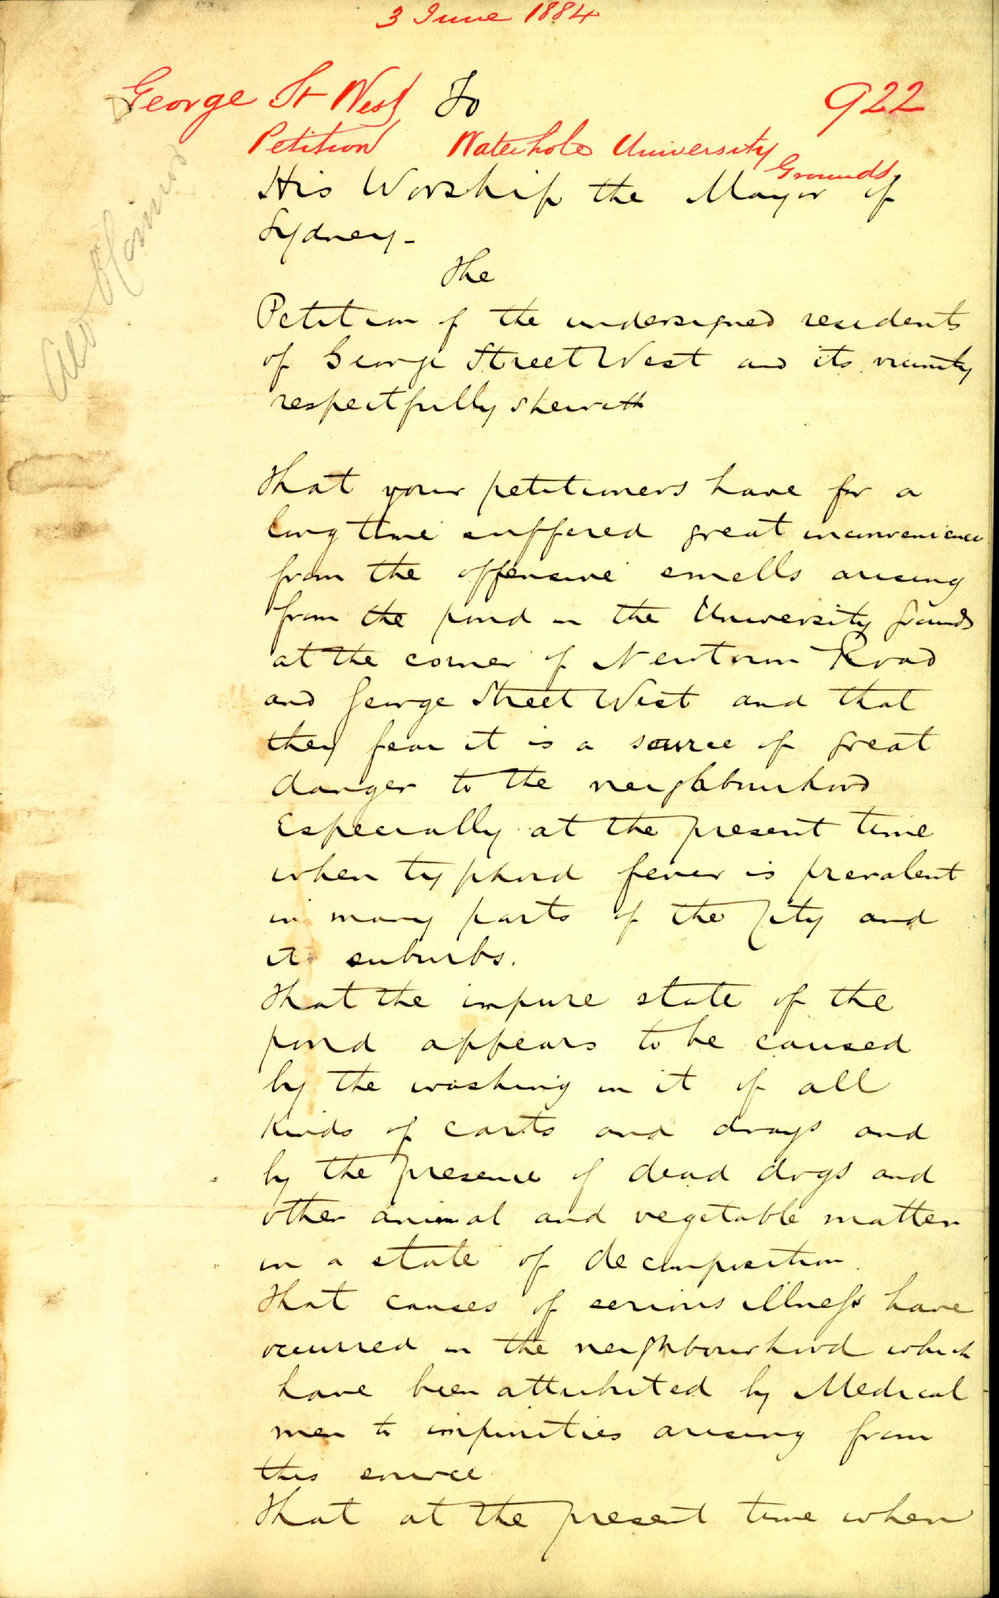 3 June 1884
George St West To 922
Petition Waterhole University
Grounds
His Worship the Mayor of
Sydney -
The
Petition of the undersigned residents
of George Street West and its vicinity
respectfully sheweth
That your petitioners have for a
long time suffered great inconvenience
from the offensive smells arising
from the pond in the University grounds
at the corner of Newtown Road
and George Street West and that
they fear it is a source of great
danger to the neighbourhood
Especially at the present time
when typhoid fever is prevalent
in many parts of the City and
its suburbs.
That the impure state of the
pond appears to be caused
by the washing in it of all
kinds of carts and drays and
by the presence of dead dogs and
other animal and vegetable matter
in a state of decomposition.
That causes of serious illness have
occurred in the neighbourhood which
have been attributed by Medical
men to impurities arising from
this source
That at the present time when